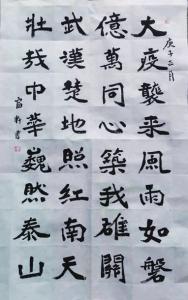 庚子二月
大疫襲来風雨如磐
億萬同心築我雄關
武漢楚地照紅南天
壯哉中華巍然泰山